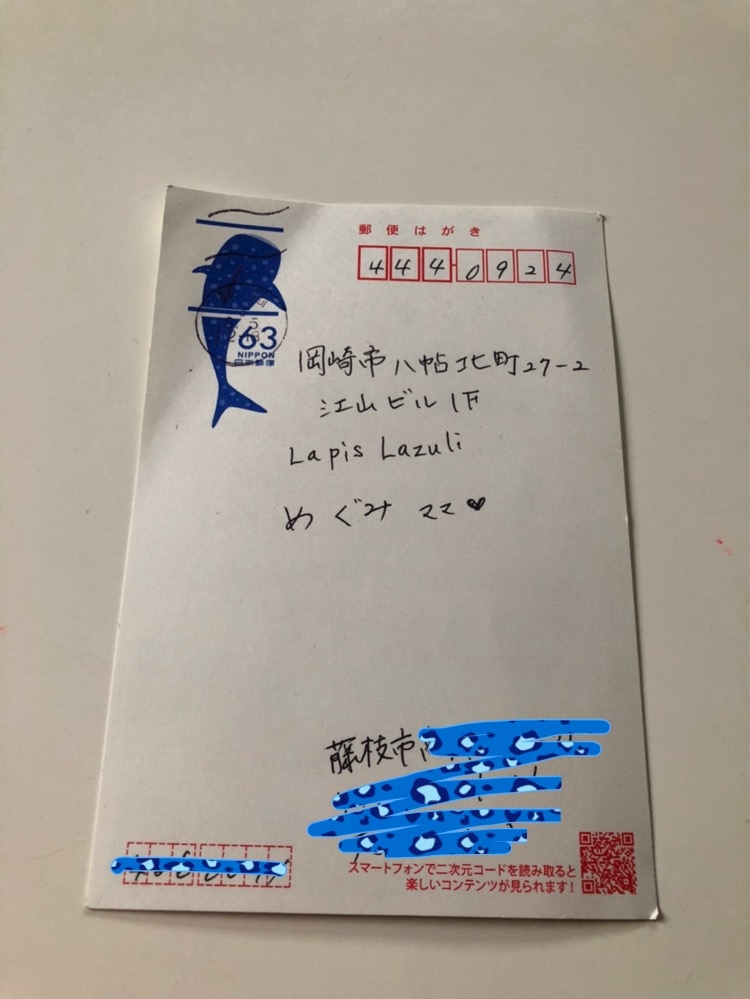 郵便はがき
444-0924
63
NIPPON
日本郵便
岡崎市八帖北町27-2
江山ビル1F
Lapis Lazuli
めぐみママ♥
藤枝市
スマートフォンで二次元コードを読み取ると
楽しいコンテンツが見られます！